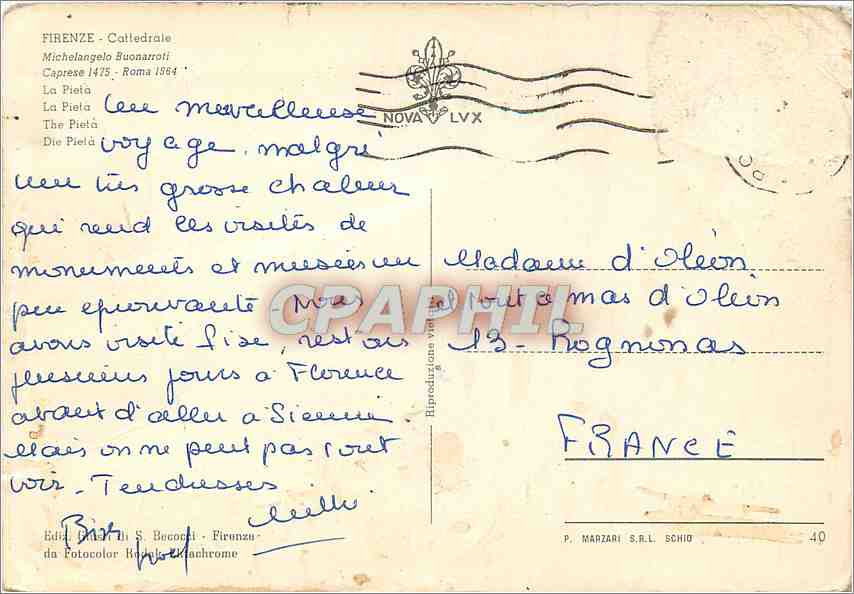 FIRENZE - Cattedrale
Michelangelo Buonarroti
Caprese 1475 - Roma 1564
La Pietà
La Pietà
The Pietà
Die Pietà
NOVA LVX
Un merveilleuse
voyage, malgré
une très grosse chaleur
qui rend les visites de
monuments et musées un
peu éprouvante - Nous
avons visité Pise, restons
plusieurs jours à Florence
avant d'aller à Sienne.
Mais on ne peut pas tout
voir - Tendresses
Madame d'Oléon
et tout à mas d'Oléon
13 - Rognonas
FRANCE
CPAPHIL
Riproduzione
Ediz. Giusti di S. Becocci - Firenze
da Fotocolor Kodak Ektachrome
P. MARZARI S.R.L. SCHIO
40